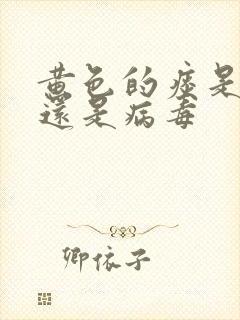 黄色的痰是
還是病毒
卿依子